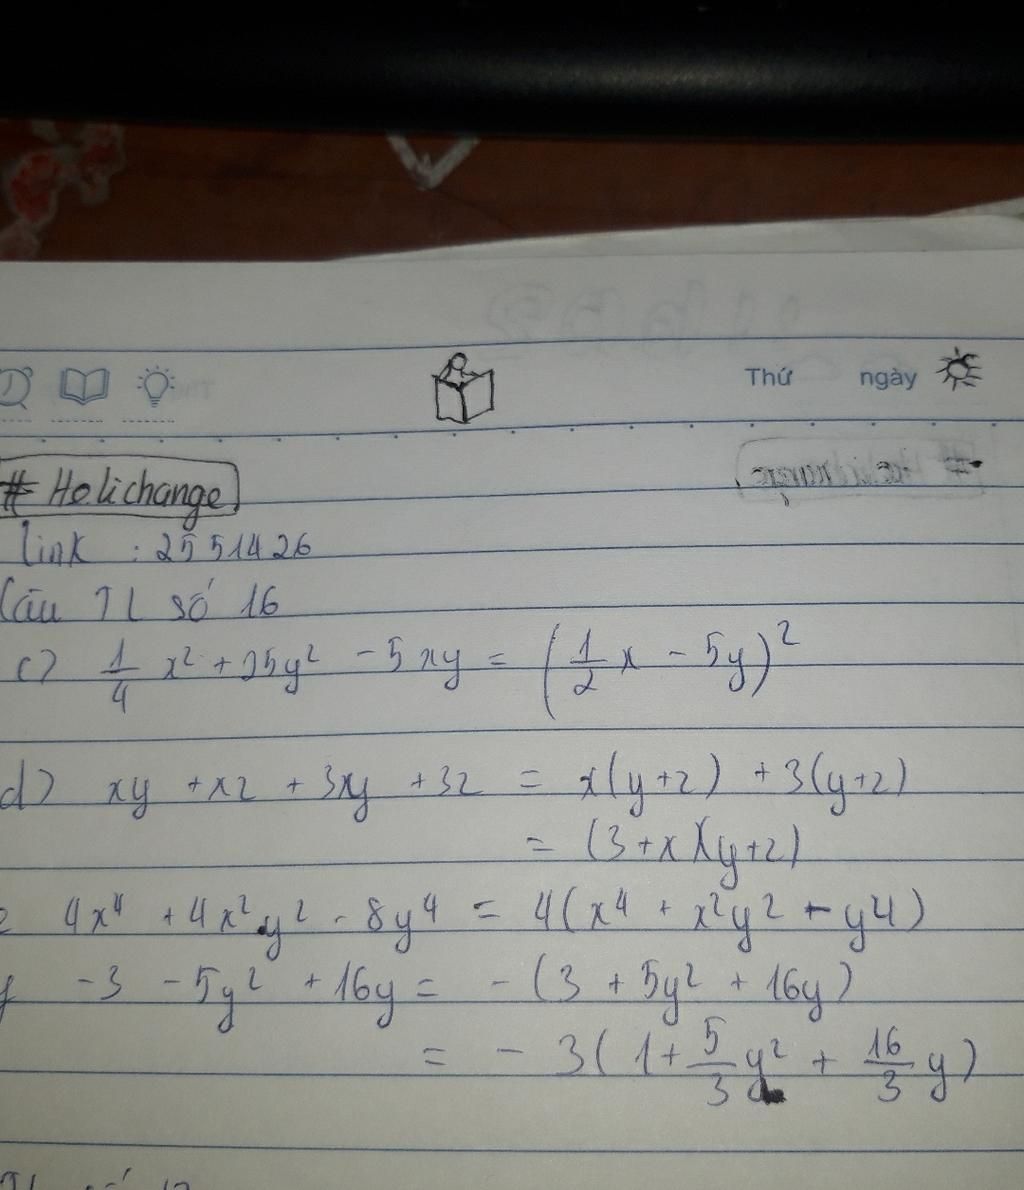 Thứ ngày
# Holichange
link : 2551426
Câu TL số 16
c) 1/4 x² + 25y² - 5xy = (1/2 x - 5y)²
d) xy + xz + 3xy + 3z = x(y+z) + 3(y+z)
= (3+x)(y+z)
e 4x⁴ + 4x²y² - 8y⁴ = 4(x⁴ + x²y² - y4)
f -3 - 5y² + 16y = - (3 + 5y² + 16y)
= - 3(1 + 5/3 y² + 16/3 y)